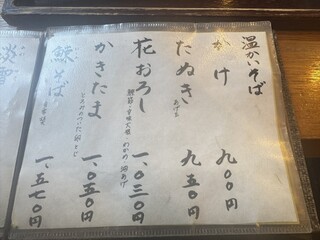 温かいそば
かけ 九〇〇円
たぬき 九五〇円
あげ玉
花おろし 一、〇三〇円
かきたま 一、〇五〇円
とろみのついた卵とじ
鰊そば 一、五七〇円